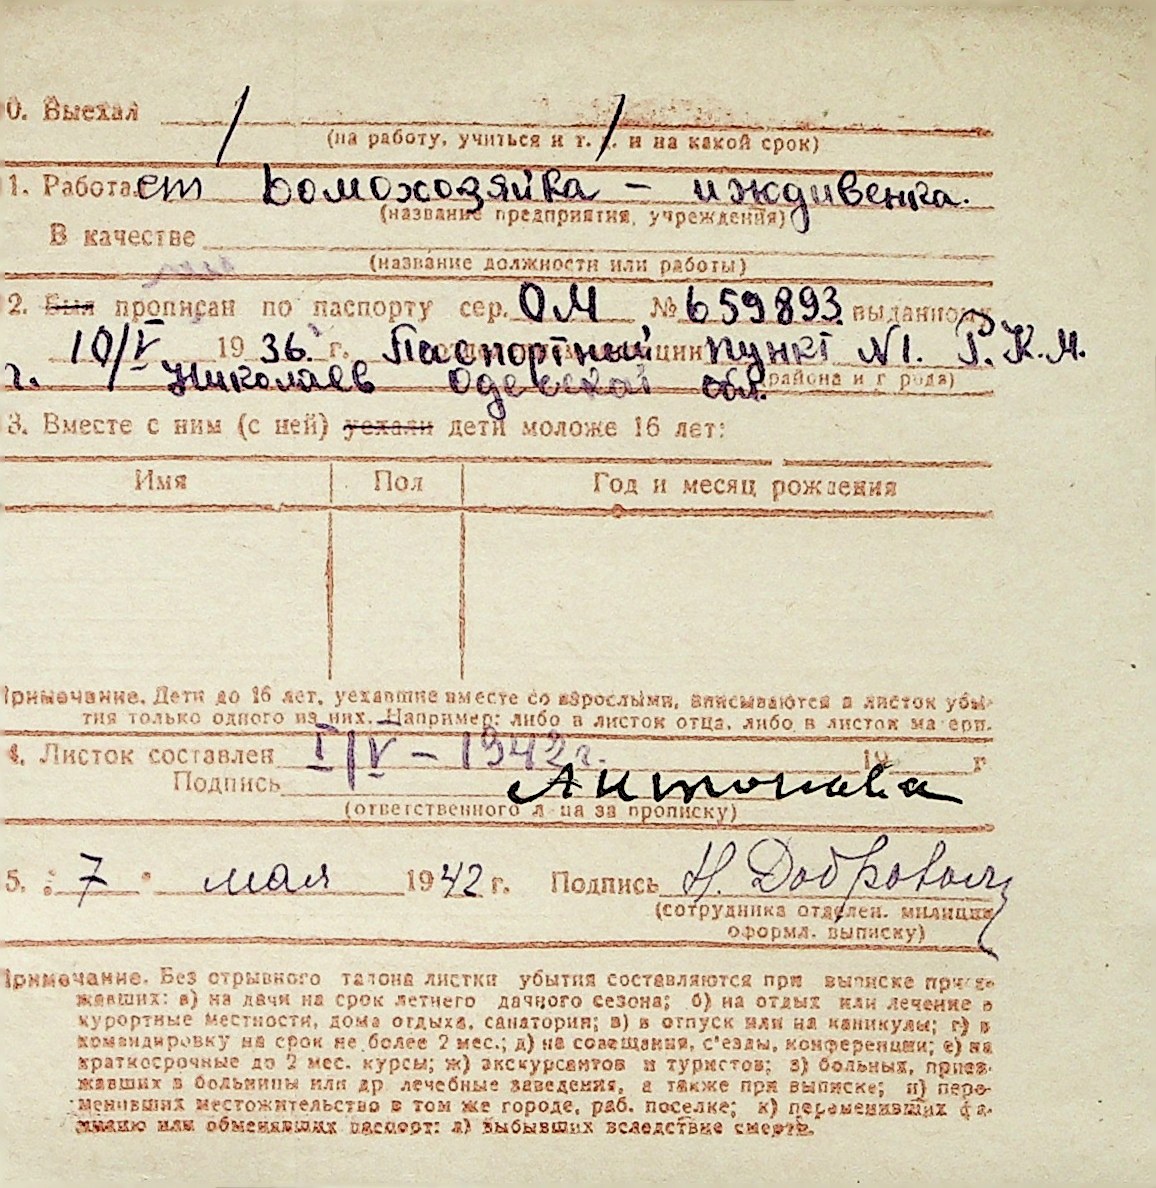 0. Выехал
(на работу, учиться и т. д. и на какой срок)
1. Работает Домохозяйка – иждивенка.
(название предприятия, учреждения)
В качестве
(название должности или работы)
2. Был прописан по паспорту сер. ОМ № 659893 выданному
10/V 1936 г. Паспортный пункт N1. Р.К.М.
г. Николаев Одесской обл. района и города)
3. Вместе с ним (с ней) уехали дети моложе 16 лет:
Имя Пол Год и месяц рождения
Примечание. Дети до 16 лет, уехавшие вместе со взрослыми, вписываются в листок убы-
тия только одного из них. Например: либо в листок отца, либо в листок матери.
4. Листок составлен I/V – 1942 г. 19 г
Подпись Антонова
(ответственного лица за прописку)
5. 7 мая 1942 г. Подпись Н. Добровол
(сотрудника отделен. милиции
оформл. выписку)
Примечание. Без отрывного талона листки убытия составляются при выписке приез-
жавших: а) на дачи на срок летнего дачного сезона; б) на отдых или лечение в
курортные местности, дома отдыха, санатория; в) в отпуск или на каникулы; г) в
командировку на срок не более 2 мес.; д) на совещания, с'езды, конференции; е) на
краткосрочные до 2 мес. курсы; ж) экскурсантов и туристов; з) больных, приез-
жавших в больницы или др лечебные заведения, а также при выписке; и) пере-
менивших местожительство в том же городе, раб. поселке; к) переменивших фа-
милию или обменявших паспорт: л) выбывших вследствие смерти.